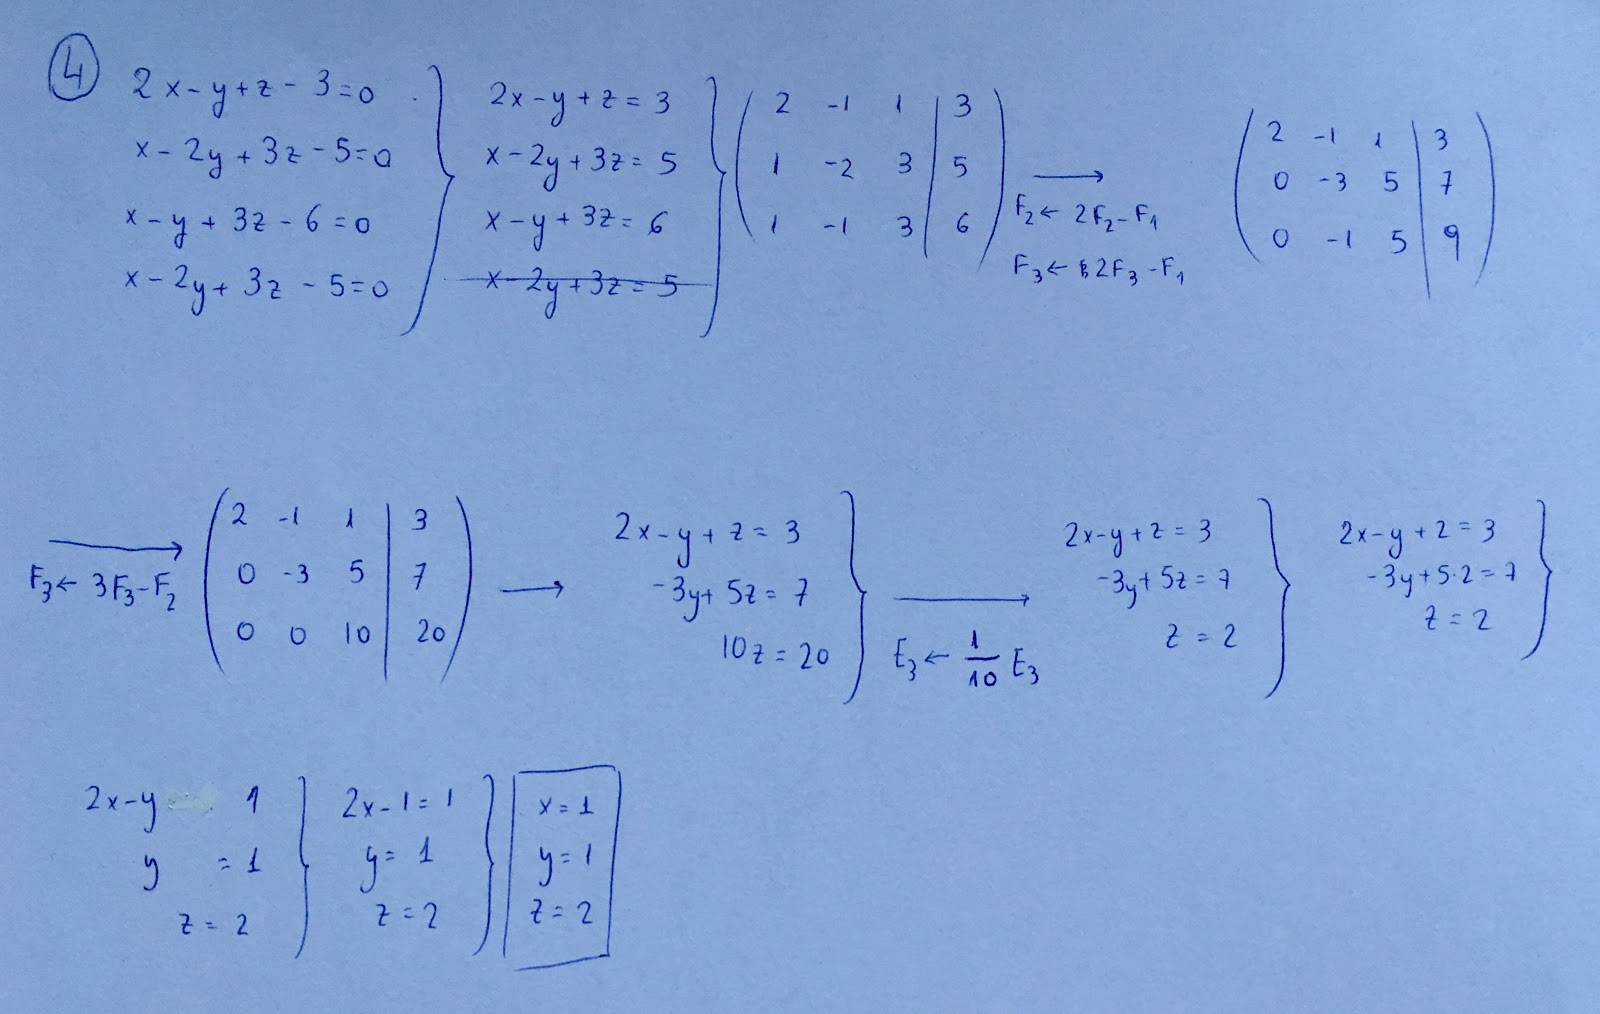 4
2x-y+z-3=0
x-2y+3z-5=0
x-y+3z-6=0
x-2y+3z-5=0
2x-y+z=3
x-2y+3z=5
x-y+3z=6
x-2y+3z=5
2 -1 1 | 3
1 -2 3 | 5
1 -1 3 | 6
F₂← 2F₂-F₁
F₃← 2F₃-F₁
2 -1 1 | 3
0 -3 5 | 7
0 -1 5 | 9
F₃← 3F₃-F₂
2 -1 1 | 3
0 -3 5 | 7
0 0 10 | 20
2x-y+z=3
-3y+5z=7
10z=20
E₃← 1/10 E₃
2x-y+z=3
-3y+5z=7
z=2
2x-y+2=3
-3y+5·2=7
z=2
2x-y 1
y =1
z=2
2x-1=1
y=1
z=2
x=1
y=1
z=2